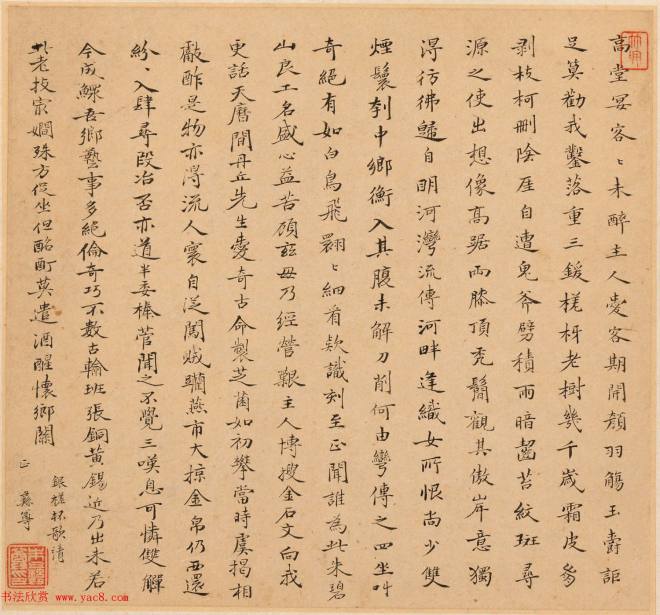 高堂宴客〻未醉主人愛客期開顏羽觴玉爵詎
足算勸我鑿落重三鍰槎枒老樹幾千歲霜皮多
剥枝柯刪陰厓自遭鬼斧劈積雨暗齧苔紋斑尋
源之使出想像高踞兩膝頂禿鬜觀其傲岸意獨
得彷彿歸自明河灣流傳河畔逢織女所恨尚少雙
煙鬟刳中鄉衡入其腹未解刀削何由彎傳之四坐叫
奇絕有如白鳥飛翾〻細看款識刻至正問誰為此朱碧
山良工名盛心益苦顧茲毋乃經營艱主人博搜金石文向我
更話天曆間丹丘先生愛奇古命製芝菌如初攀當時虞揭相
獻酢是物亦得流人寰自從闖賊躪燕市大掠金帛仍西還
紛〻入肆尋段冶否亦道半委榛菅聞之不覺三嘆息可憐雙觶
今成鰥吾鄉藝事多絕倫奇巧不數古輪班張銅黃錫近乃出未若
此老技最嫺殊方促坐但酩酊莫遣酒醒懷鄉關
銀槎杯歌請
正 彝尊
书法欣赏 www.yac8.com